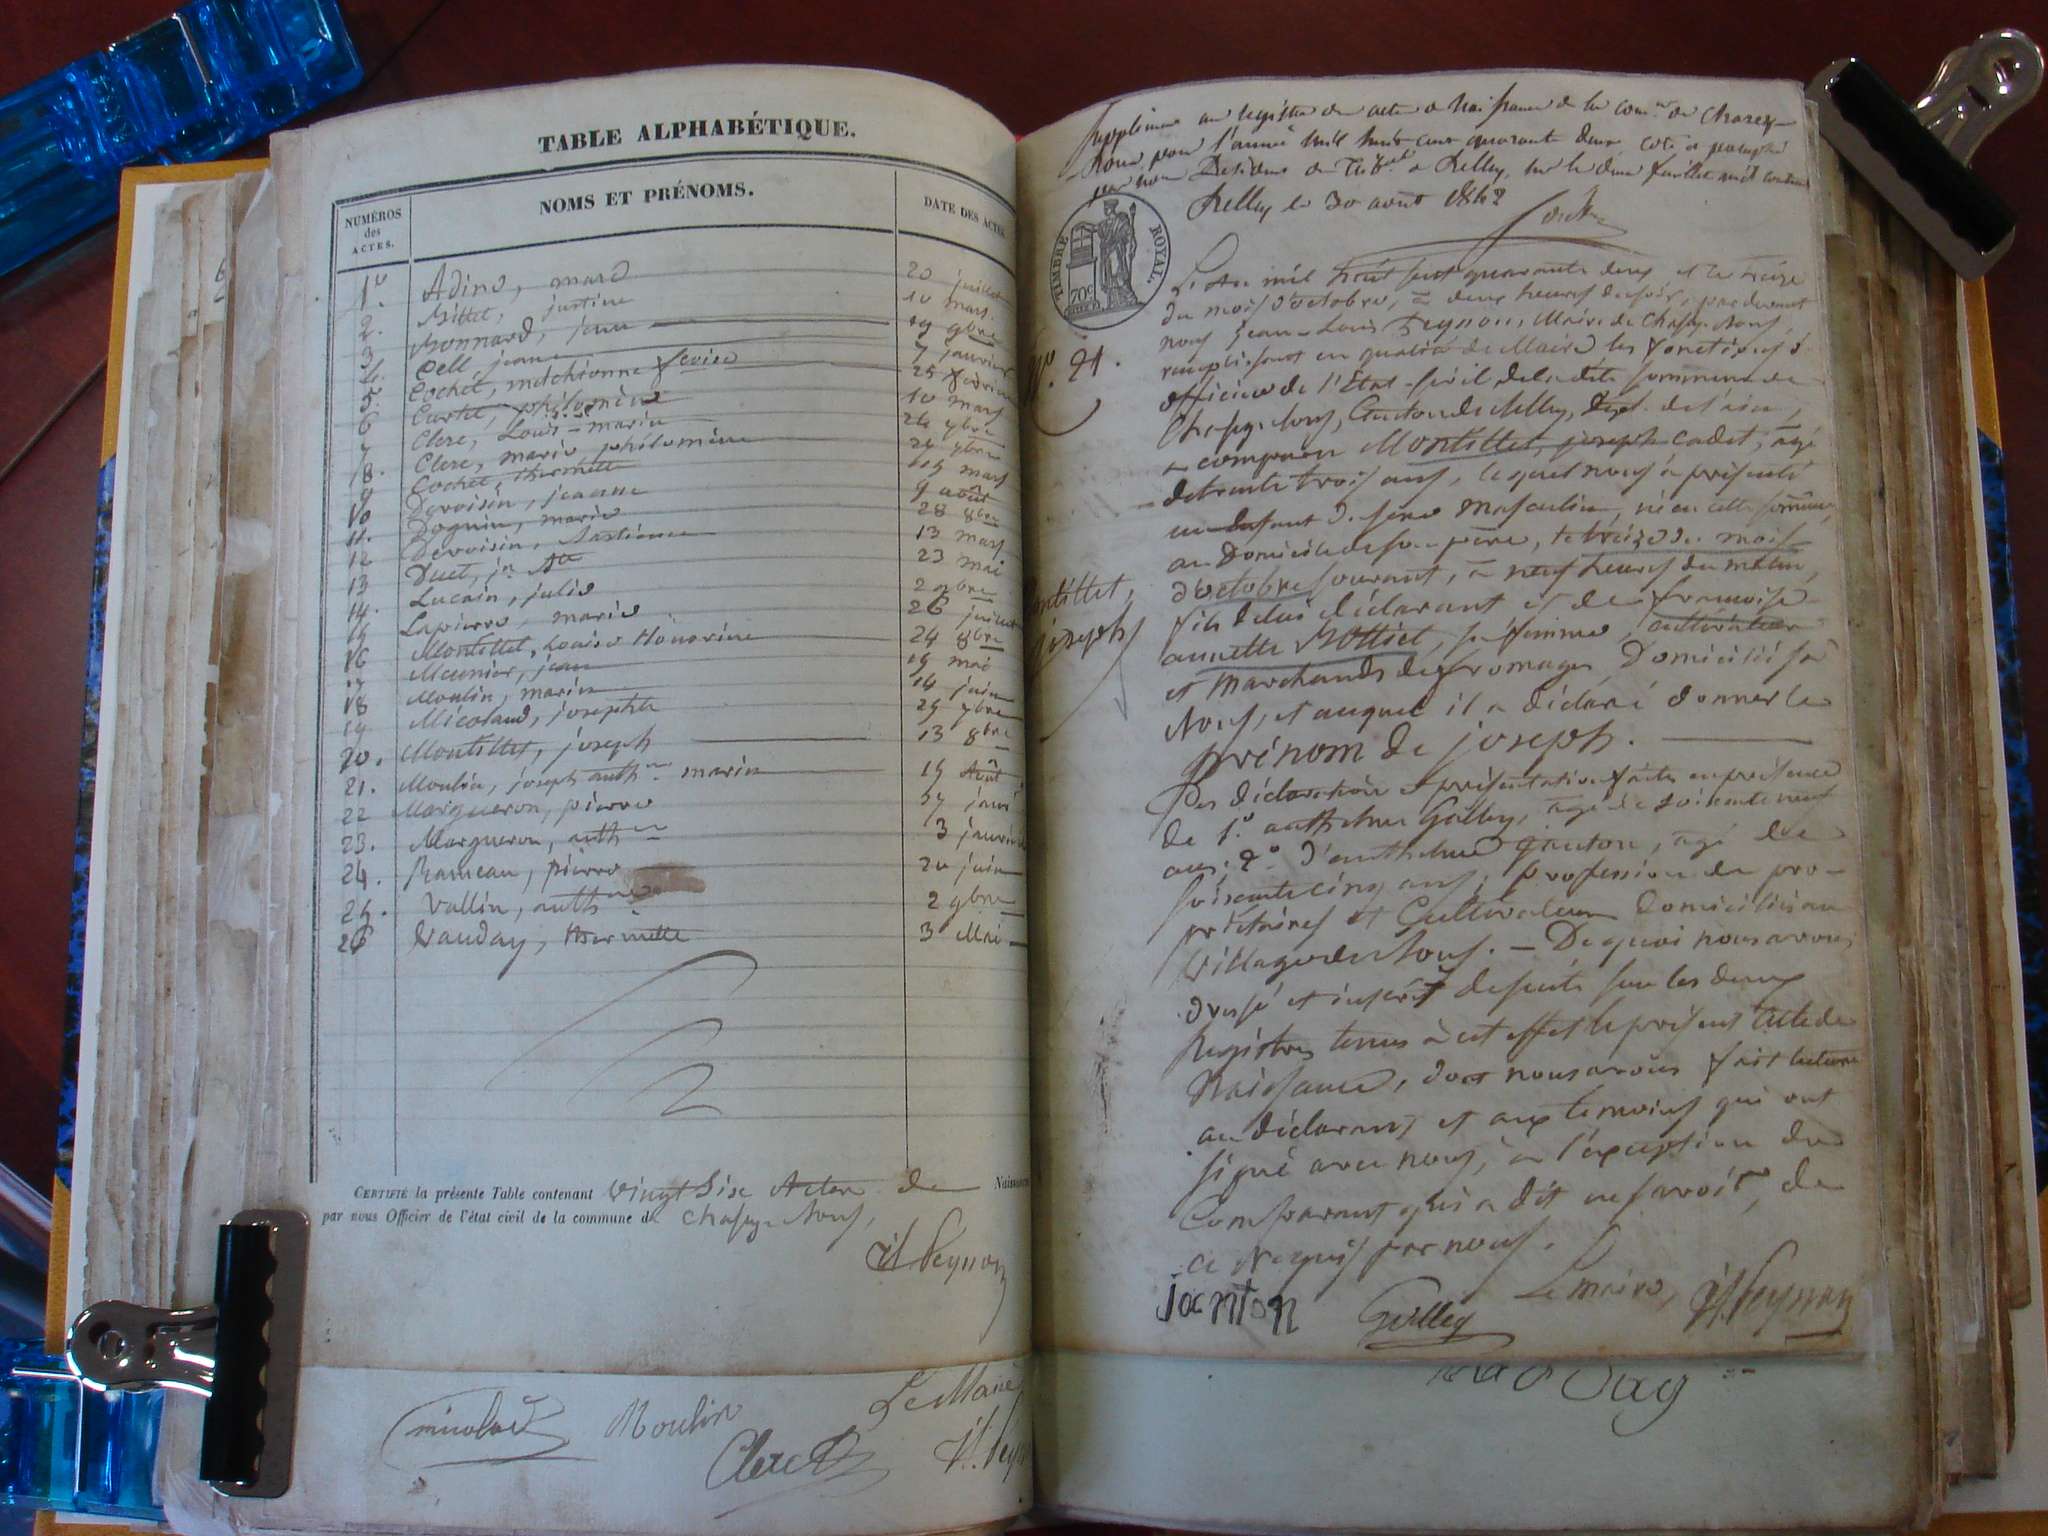 TABLE ALPHABÉTIQUE.
NUMÉROS
des
ACTES.
NOMS ET PRÉNOMS.
DATE DES ACTES
1.
Adine, marie
20 juillet
2.
Billet, justine
10 mars.
3
Bonnard, jean
19 9bre
4.
Cell, jeanne
7 janvier
5
Cochet, melchionne
25 février
6
Curtet, philomène
10 mars
7
Clerc, Louis-marin
24 9bre
8.
Clerc, marie philomène
9
Cochet, thermette
19 mars
10
Devoisin, jeanne
9 août
11.
Dognin, marie
28 8bre
12
Devoisin, Bastienne
13 mars
13
Duet, jn Bte
23 mai
14.
Lucain, julie
2 9bre
15
Lapierre, marie
26 juillet
16
Montillet, Louise Honorine
24 8bre
17
Meunier, jean
19 mai
18
Moulin, marie
14 juin
19
Micoland, josephte
20.
Montillet, joseph
13 8bre
21.
Moulin, joseph anthme marin
15 Août
22
Margueron, pierre
23.
Margueron, anthme
3 janvier
24.
Rameau, pierre
20 juin
25.
Vallin, anthme
2 9bre
26
Vauday, thermette
3 Mai
CERTIFIÉ la présente Table contenant vingt six Actes de Naissance
par nous Officier de l'état civil de la commune de Chazey-Bons,
JL Peynon
Moulin
Le Maire
Clerc
Supplément au registre des actes de Naissance de la comne de Chazey-
Bons, pour l'année mil huit cent quarante deux, coté et paraphé
par nous Président du Tribal de Belley, sur le deux feuillet
Belley le 30 août 1842
TIMBRE ROYAL
70c
No. 21.
Montillet,
joseph
L'an mil huit cent quarante deux et le treize
du mois d'octobre, à deux heures du soir, par devant
nous Jean-Louis Peynon, Maire de Chazey-Bons,
remplissant en qualité de Maire les fonctions d'
officier de l'État-Civil de la dite commune de
Chazey-Bons, Canton de Belley, Dept. de l'ain,
a comparu Montillet, joseph cadet, âgé
de trente trois ans, lequel nous a présenté
un Enfant du sexe masculin, né en cette commune,
au Domicile de son père, le treize du mois
d'octobre courant, à neuf heures du matin,
fils de lui déclarant et de françoise
annette Bottiel, sa femme, cultivateur
et Marchands de fromages Domiciliés à
Bons, et auquel il a déclaré donner le
prénom de joseph.
Les déclaration et présentation faites en présence
de 1o. anthelme Golley, âgé de soixante neuf
ans; 2o. d'anthelme janton, âgé de
soixante cinq ans, profession de pro-
priétaires et Cultivateurs Domiciliés au
village de Bons. - De quoi nous avons
dressé et inscrit de suite sur les deux
Registres tenus à cet effet le présent acte de
Naissance, dont nous avons fait lecture
au déclarant et aux témoins qui ont
signé avec nous, à l'exception du
Comparant qui a dit ne savoir, de
ce Requis par nous.
Le maire,
janton
Golley
JL Peynon